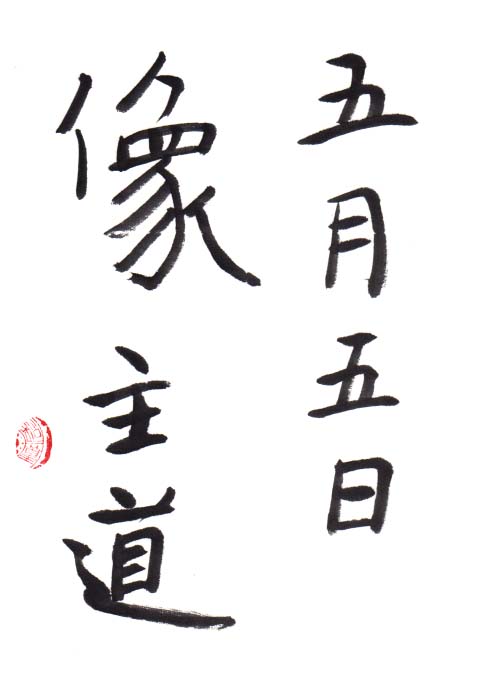 五月五日
像主道